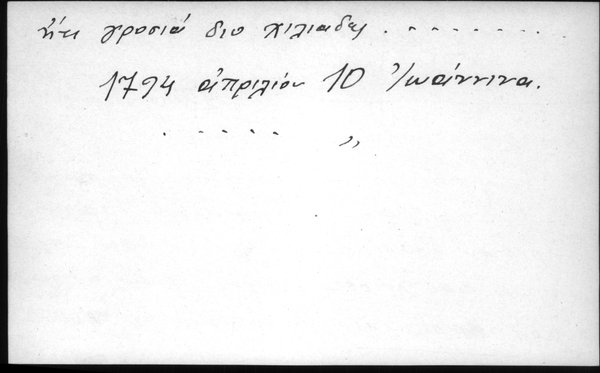 ἤτι γροσιά διο χιλιαδες . . . . . . . . .
1794 ἀπριλίου 10 Ἰωάννινα.
. . . . . „